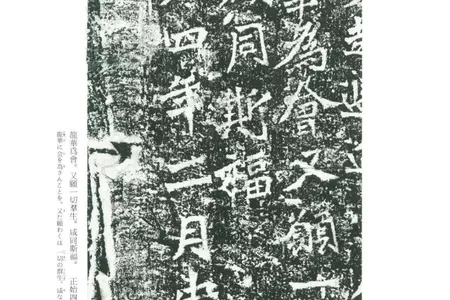 華為會又願一
同斯福
四年二月中
龍華爲會。又願一切羣生。咸同斯福。　正始四
龍華に会を為さんことを。又た願わくは一切の群生、咸な